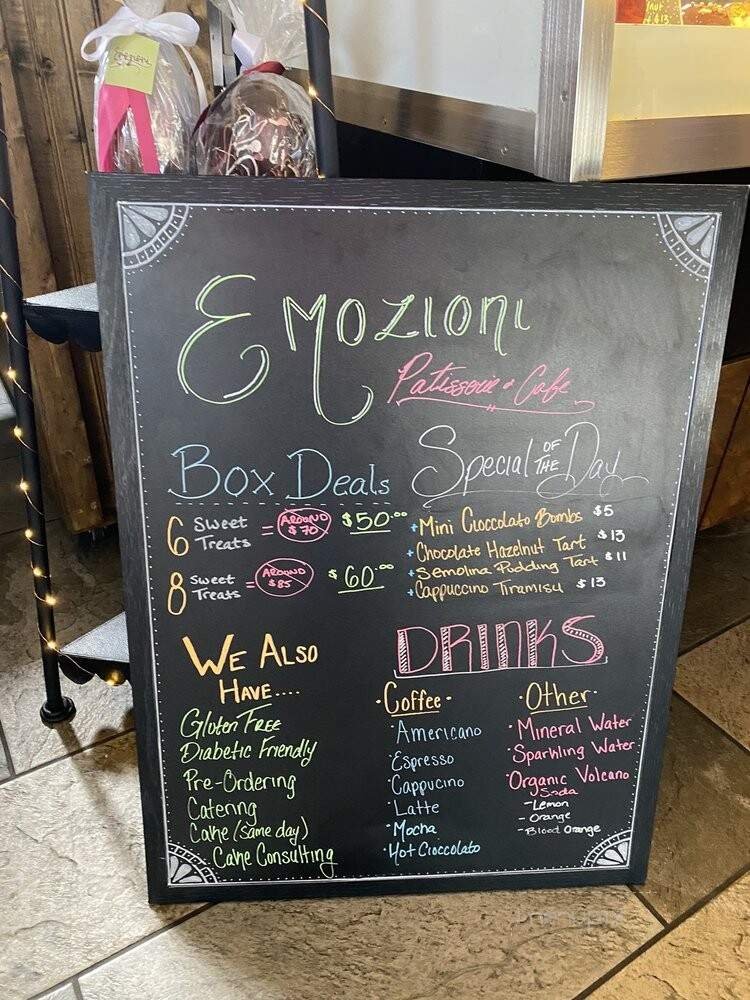 Emozioni
Patisserie & Cafe
Box Deals
6 Sweet Treats = AROUND $70 $50.00
8 Sweet Treats = AROUND $85 $60.00
Special OF THE Day
+Mini Cioccolato Bombs $5
+Chocolate Hazelnut Tart $13
+Semolina Pudding Tart $11
+Cappuccino Tiramisu $13
WE ALSO
HAVE....
Gluten FREE
Diabetic Friendly
Pre-Ordering
Catering
Cake (same day)
Cake Consulting
DRINKS
·Coffee·
·Americano
Espresso
·Cappucino
·Latte
·Mocha
·Hot Cioccolato
·Other·
·Mineral Water
·Sparkling Water
·Organic Volcano
Soda
-Lemon
-Orange
-Blood Orange
$13